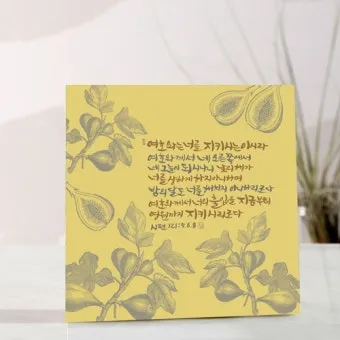 여호와는 너를 지키시는 이시라
여호와께서 네 오른쪽에서
네 그늘이 되시나니 낮의 해가
너를 상하게 하지 아니하며
밤의 달도 너를 해치지 아니하리로다
여호와께서 너의 출입을 지금부터
영원까지 지키시리로다
시편 121:5,6,8